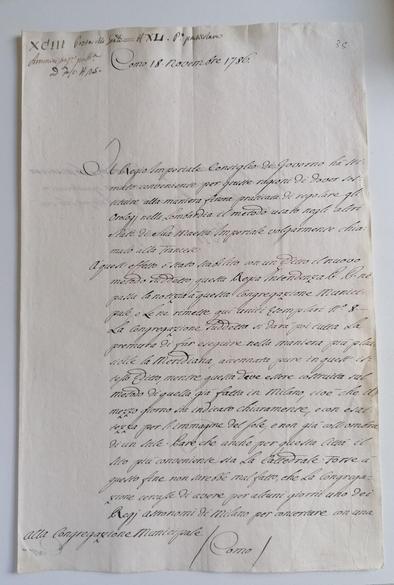 XCIII
N XLI.
Como 18 Novembre 1786.
Il Regio Imperiale Consiglio di Governo ha sti-
mato conveniente per giuste ragioni di dover sos-
tituire alla maniera finora praticata di regolare gli
Orologj nella Lombardia il metodo usato negli altri
Stati di Sua Maestà Imperiale volgarmente chia-
mato alla Francese
A quest' effetto è stato stabilito con un Editto il nuovo
metodo suddetto, questa Regia Intendenza
la notizia a questa Congregazione Munici-
pale, e Le ne rimette qui uniti Esemplari N° 8
La Congregazione suddetta si darà poi tutta la
premura di far eseguire nella maniera più
la Meridiana, accennata pure in quest' is-
tesso Editto, mentre questa deve essere costrutta sul
metodo di quella già fatta in Milano, cioè che il
mezzo giorno sia indicato chiaramente, e con esat-
tezza per l'immagine del sole, e non già coll'ombra
di un stile. Pare che anche per questa Città il
sito più conveniente sia la Cattedrale. Forse a
questo fine non sarebbe mal fatto, che la Congrega-
zione di avere per alcuni giorni uno dei
Regj astronomi di Milano per concertare con una
Alla Congregazione Municipale
/ Como /